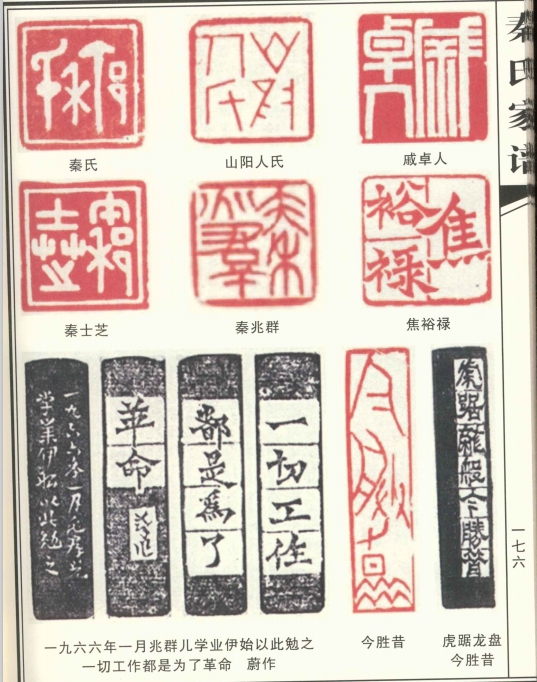 秦氏家谱
秦氏
山阳人氏
戚卓人
秦士芝
秦兆群
焦裕禄
裕禄
焦
一九六六年一月兆群儿
学业伊始以此勉之
革命
都是為了
一切工作
今胜昔
虎踞龍盤今勝昔
一七六
一九六六年一月兆群儿学业伊始以此勉之
一切工作都是为了革命　蔚作
今胜昔
虎踞龙盘
今胜昔